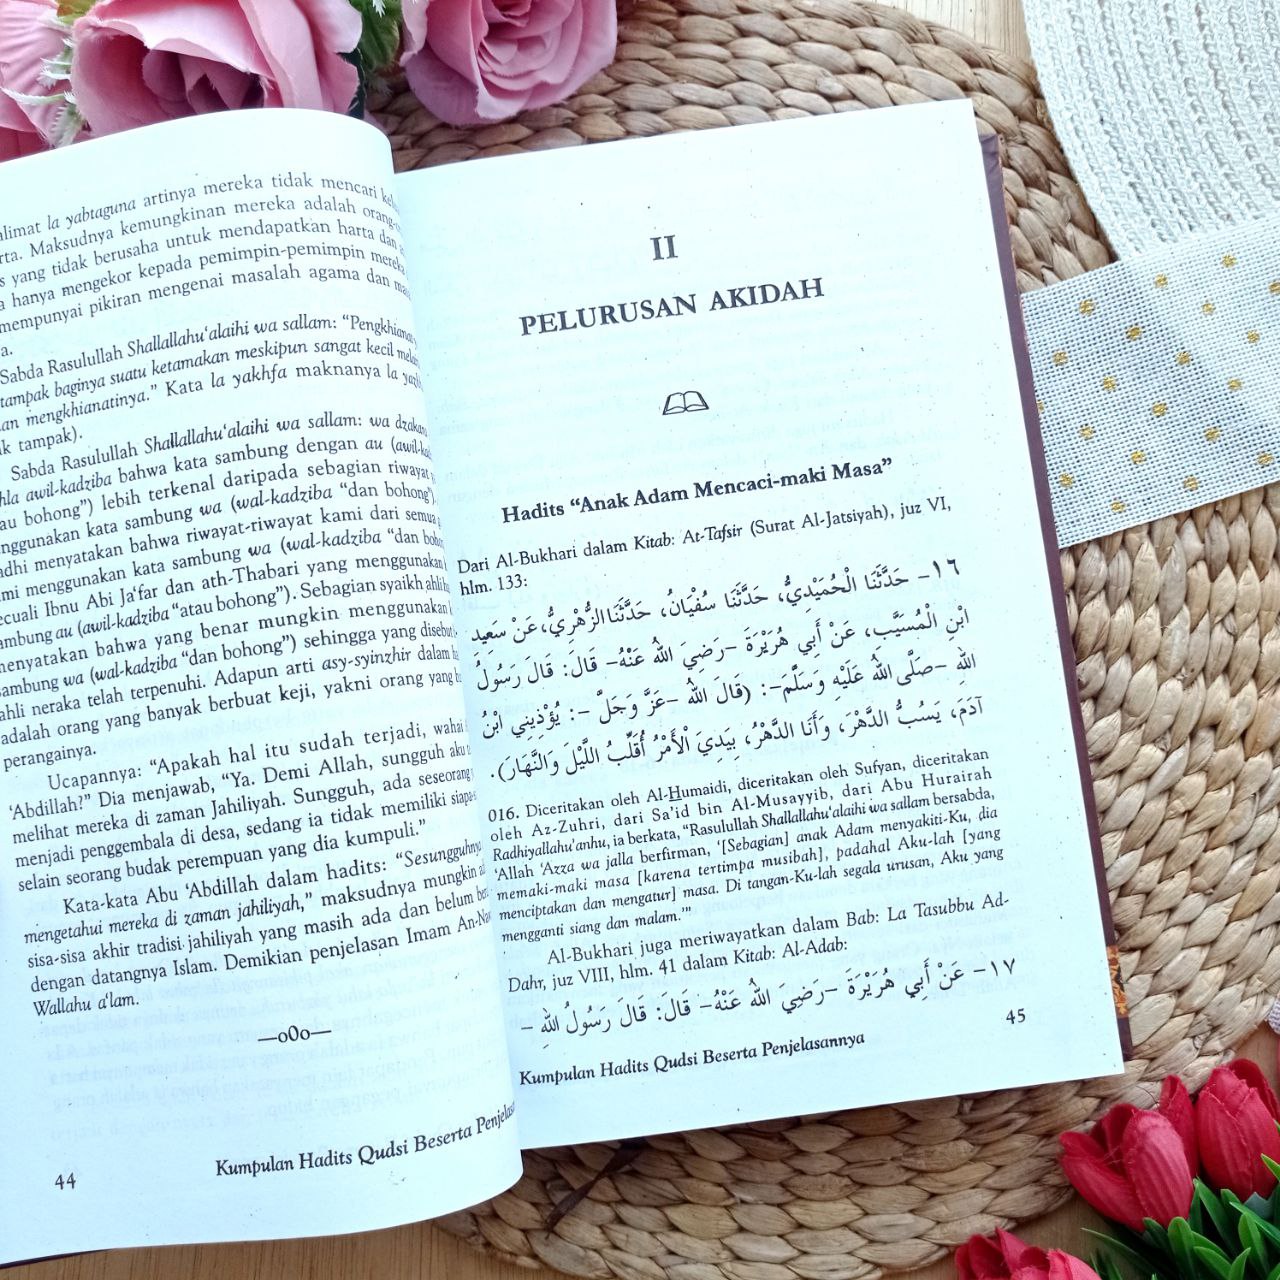 alimat la yabtaguna artinya mereka tidak mencari
rta. Maksudnya kemungkinan mereka adalah
s yang tidak berusaha untuk mendapatkan harta dan
a hanya mengekor kepada pemimpin-pemimpin mereka
mempunyai pikiran mengenai masalah agama dan
a.
Sabda Rasulullah Shallallahu‘alaihi wa sallam: “Pengkhianat
tampak baginya suatu ketamakan meskipun sangat kecil
an mengkhianatinya.” Kata la yakhfa maknanya la
k tampak).
Sabda Rasulullah Shallallahu‘alaihi wa sallam: wa dzakara
hla awil-kadziba bahwa kata sambung dengan au (awil-
au bohong”) lebih terkenal daripada sebagian riwayat
nggunakan kata sambung wa (wal-kadziba “dan bohong”).
adhi menyatakan bahwa riwayat-riwayat kami dari semua
mi menggunakan kata sambung wa (wal-kadziba “dan
ecuali Ibnu Abi Ja‘far dan ath-Thabari yang menggunakan
ambung au (awil-kadziba “atau bohong”). Sebagian syaikh ahli
menyatakan bahwa yang benar mungkin menggunakan
sambung wa (wal-kadziba “dan bohong”) sehingga yang disebut
ahli neraka telah terpenuhi. Adapun arti asy-syinzhir dalam
adalah orang yang banyak berbuat keji, yakni orang yang
perangainya.
Ucapannya: “Apakah hal itu sudah terjadi, wahai
‘Abdillah?” Dia menjawab, “Ya. Demi Allah, sungguh aku
melihat mereka di zaman Jahiliyah. Sungguh, ada seseorang
menjadi penggembala di desa, sedang ia tidak memiliki
selain seorang budak perempuan yang dia kumpuli.”
Kata-kata Abu ‘Abdillah dalam hadits: “Sesungguhnya
mengetahui mereka di zaman jahiliyah,” maksudnya mungkin
sisa-sisa akhir tradisi jahiliyah yang masih ada dan belum
dengan datangnya Islam. Demikian penjelasan Imam
Wallahu a‘lam.
—o0o—
44
Kumpulan Hadits Qudsi Beserta
II
PELURUSAN AKIDAH
Hadits “Anak Adam Mencaci-maki Masa”
Dari Al-Bukhari dalam Kitab: At-Tafsir (Surat Al-Jatsiyah), juz VI,
hlm. 133:
١٦- حَدَّثَنَا الْحُمَيْدِيُّ، حَدَّثَنَا سُفْيَانُ، حَدَّثَنَا الزُّهْرِيُّ، عَنْ سَعِيدِ
ابْنِ الْمُسَيَّبِ، عَنْ أَبِي هُرَيْرَةَ -رَضِيَ اللهُ عَنْهُ- قَالَ: قَالَ رَسُولُ
اللهِ -صَلَّى اللهُ عَلَيْهِ وَسَلَّمَ-: (قَالَ اللهُ -عَزَّ وَجَلَّ-: يُؤْذِينِي ابْنُ
آدَمَ، يَسُبُّ الدَّهْرَ، وَأَنَا الدَّهْرُ، بِيَدِيَ الْأَمْرُ أُقَلِّبُ اللَّيْلَ وَالنَّهَارَ).
016. Diceritakan oleh Al-Humaidi, diceritakan oleh Sufyan, diceritakan
oleh Az-Zuhri, dari Sa’id bin Al-Musayyib, dari Abu Hurairah
Radhiyallahu’anhu, ia berkata, “Rasulullah Shallallahu‘alaihi wa sallam bersabda,
‘Allah ‘Azza wa jalla berfirman, ‘[Sebagian] anak Adam menyakiti-Ku, dia
memaki-maki masa [karena tertimpa musibah], padahal Aku-lah [yang
menciptakan dan mengatur] masa. Di tangan-Ku-lah segala urusan, Aku yang
mengganti siang dan malam.’”
Al-Bukhari juga meriwayatkan dalam Bab: La Tasubbu Ad-
Dahr, juz VIII, hlm. 41 dalam Kitab: Al-Adab:
١٧- عَنْ أَبِي هُرَيْرَةَ -رَضِيَ اللهُ عَنْهُ- قَالَ: قَالَ رَسُولُ اللهِ -
Kumpulan Hadits Qudsi Beserta Penjelasannya
45